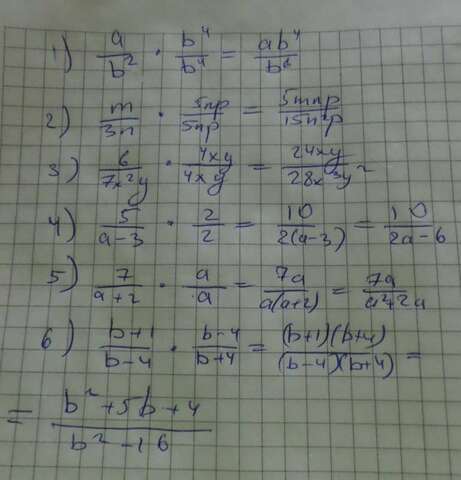 1) a/b² · b⁴/b⁴ = ab⁴/b⁶
2) m/3n · 5np/5np = 5mnp/15n²p
3) 6/7x²y · 4xy/4xy = 24xy/28x³y²
4) 5/a-3 · 2/2 = 10/2(a-3) = 10/2a-6
5) 7/a+2 · a/a = 7a/a(a+2) = 7a/a²+2a
6) b+1/b-4 · b-4/b+4 = (b+1)(b+4)/(b-4)(b+4) =
= b²+5b+4/b²-16